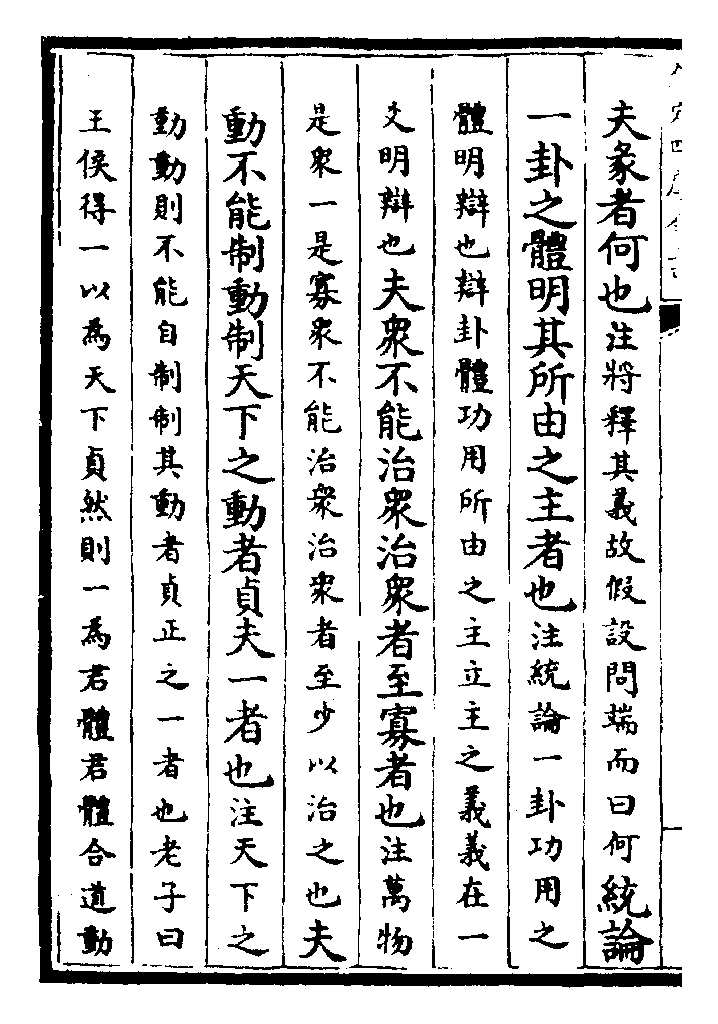 夫彖者何也注將釋其義故假設問端而曰何統論
一卦之體明其所由之主者也注統論一卦功用之
體明辯也辯卦體功用所由之主立主之義義在一
爻明辯也夫衆不能治衆治衆者至寡者也注萬物
是衆一是寡衆不能治衆治衆者至少以治之也夫
動不能制動制天下之動者貞夫一者也注天下之
動動則不能自制制其動者貞正之一者也老子曰
王侯得一以為天下貞然則一為君體君體合道動